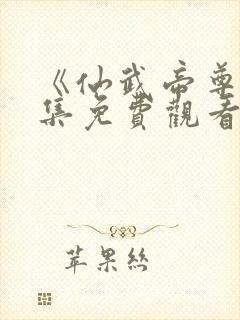 《仙武帝尊
集免費觀看
苹果絲